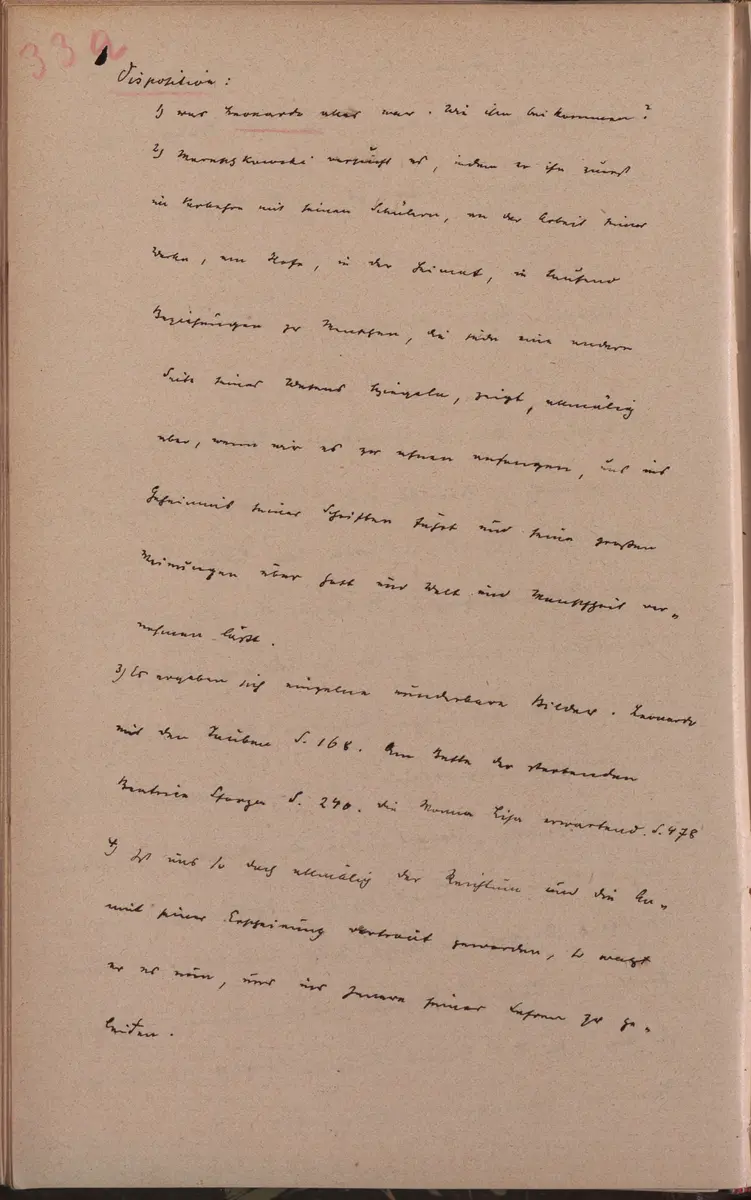 33a
Disposition:
1) was Leonardo alles war. Wie ihm beikommen?
2) Mereschkowski versucht es, indem er ihn zuerst
im Verkehre mit seinen Schülern, an der Arbeit seiner
Werke, am Hofe, in der Heimat, in tausend
Beziehungen zu Menschen, die jede eine andere
Seite seines Wesens spiegeln, zeigt, allmälig
aber, wenn wir es zu ahnen anfangen, uns ins
Geheimnis seiner Schriften führt und seine großen
Meinungen über Gott und Welt und Menschheit ver-
nehmen läßt.
3) Es ergeben sich einzelne wunderbare Bilder. Leonardo
mit den Tauben S. 168. Am Bette der sterbenden
Beatrice Sforza S. 240. die Monna Lisa erwartend. S. 478
4) Ist uns so doch allmälig der Reichtum und die An-
mut seiner Erscheinung vertraut geworden, so wagt
er es nun, uns ins Innere seiner Lehren zu ge-
leiten.